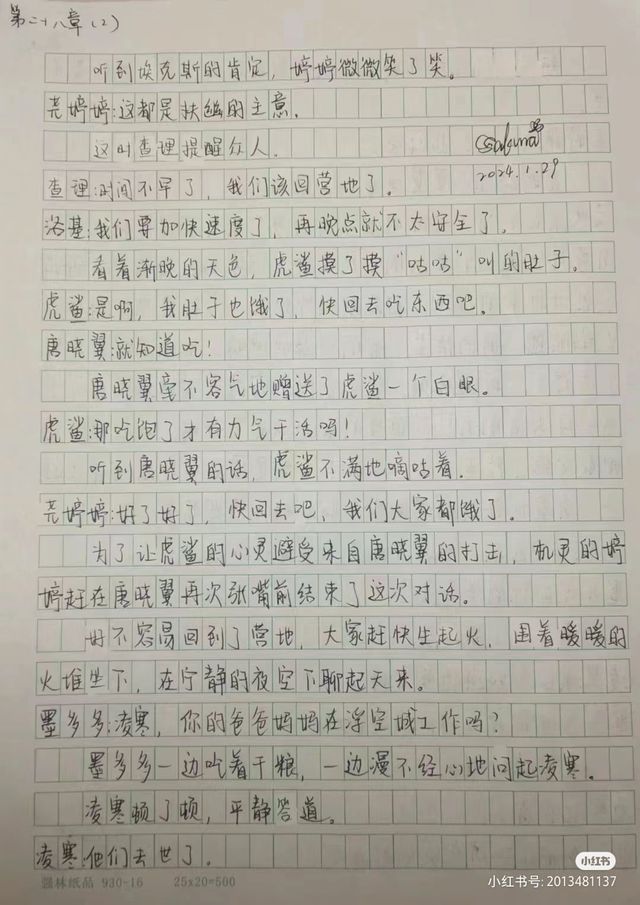 第二十八章（2）
听到埃克斯的肯定，婷婷微微笑了笑。
尧婷婷：这都是扶幽的主意。
这时查理提醒众人。
Sakura
查理：时间不早了，我们该回营地了。
2024.1.29
洛基：我们要加快速度了，再晚点就不太安全了。
看着渐晚的天色，虎鲨摸了摸“咕咕”叫的肚子。
虎鲨：是啊，我肚子也饿了，快回去吃东西吧。
唐晓翼：就知道吃！
唐晓翼毫不客气地赠送了虎鲨一个白眼。
虎鲨：那吃饱了才有力气干活吗！
听到唐晓翼的话，虎鲨不满地嘀咕着。
尧婷婷：好了好了，快回去吧，我们大家都饿了。
为了让虎鲨的心灵避受来自唐晓翼的打击，机灵的婷
婷赶在唐晓翼再次张嘴前结束了这次对话。
好不容易回到了营地，大家赶快生起火，围着暖暖的
火堆坐下，在宁静的夜空下聊起天来。
墨多多：凌寒，你的爸爸妈妈在浮空城工作吗？
墨多多一边吃着干粮，一边漫不经心地问起凌寒。
凌寒顿了顿，平静答道。
凌寒：他们去世了。
强林纸品 930-16 25×20=500
小红书
小红书号：2013481137